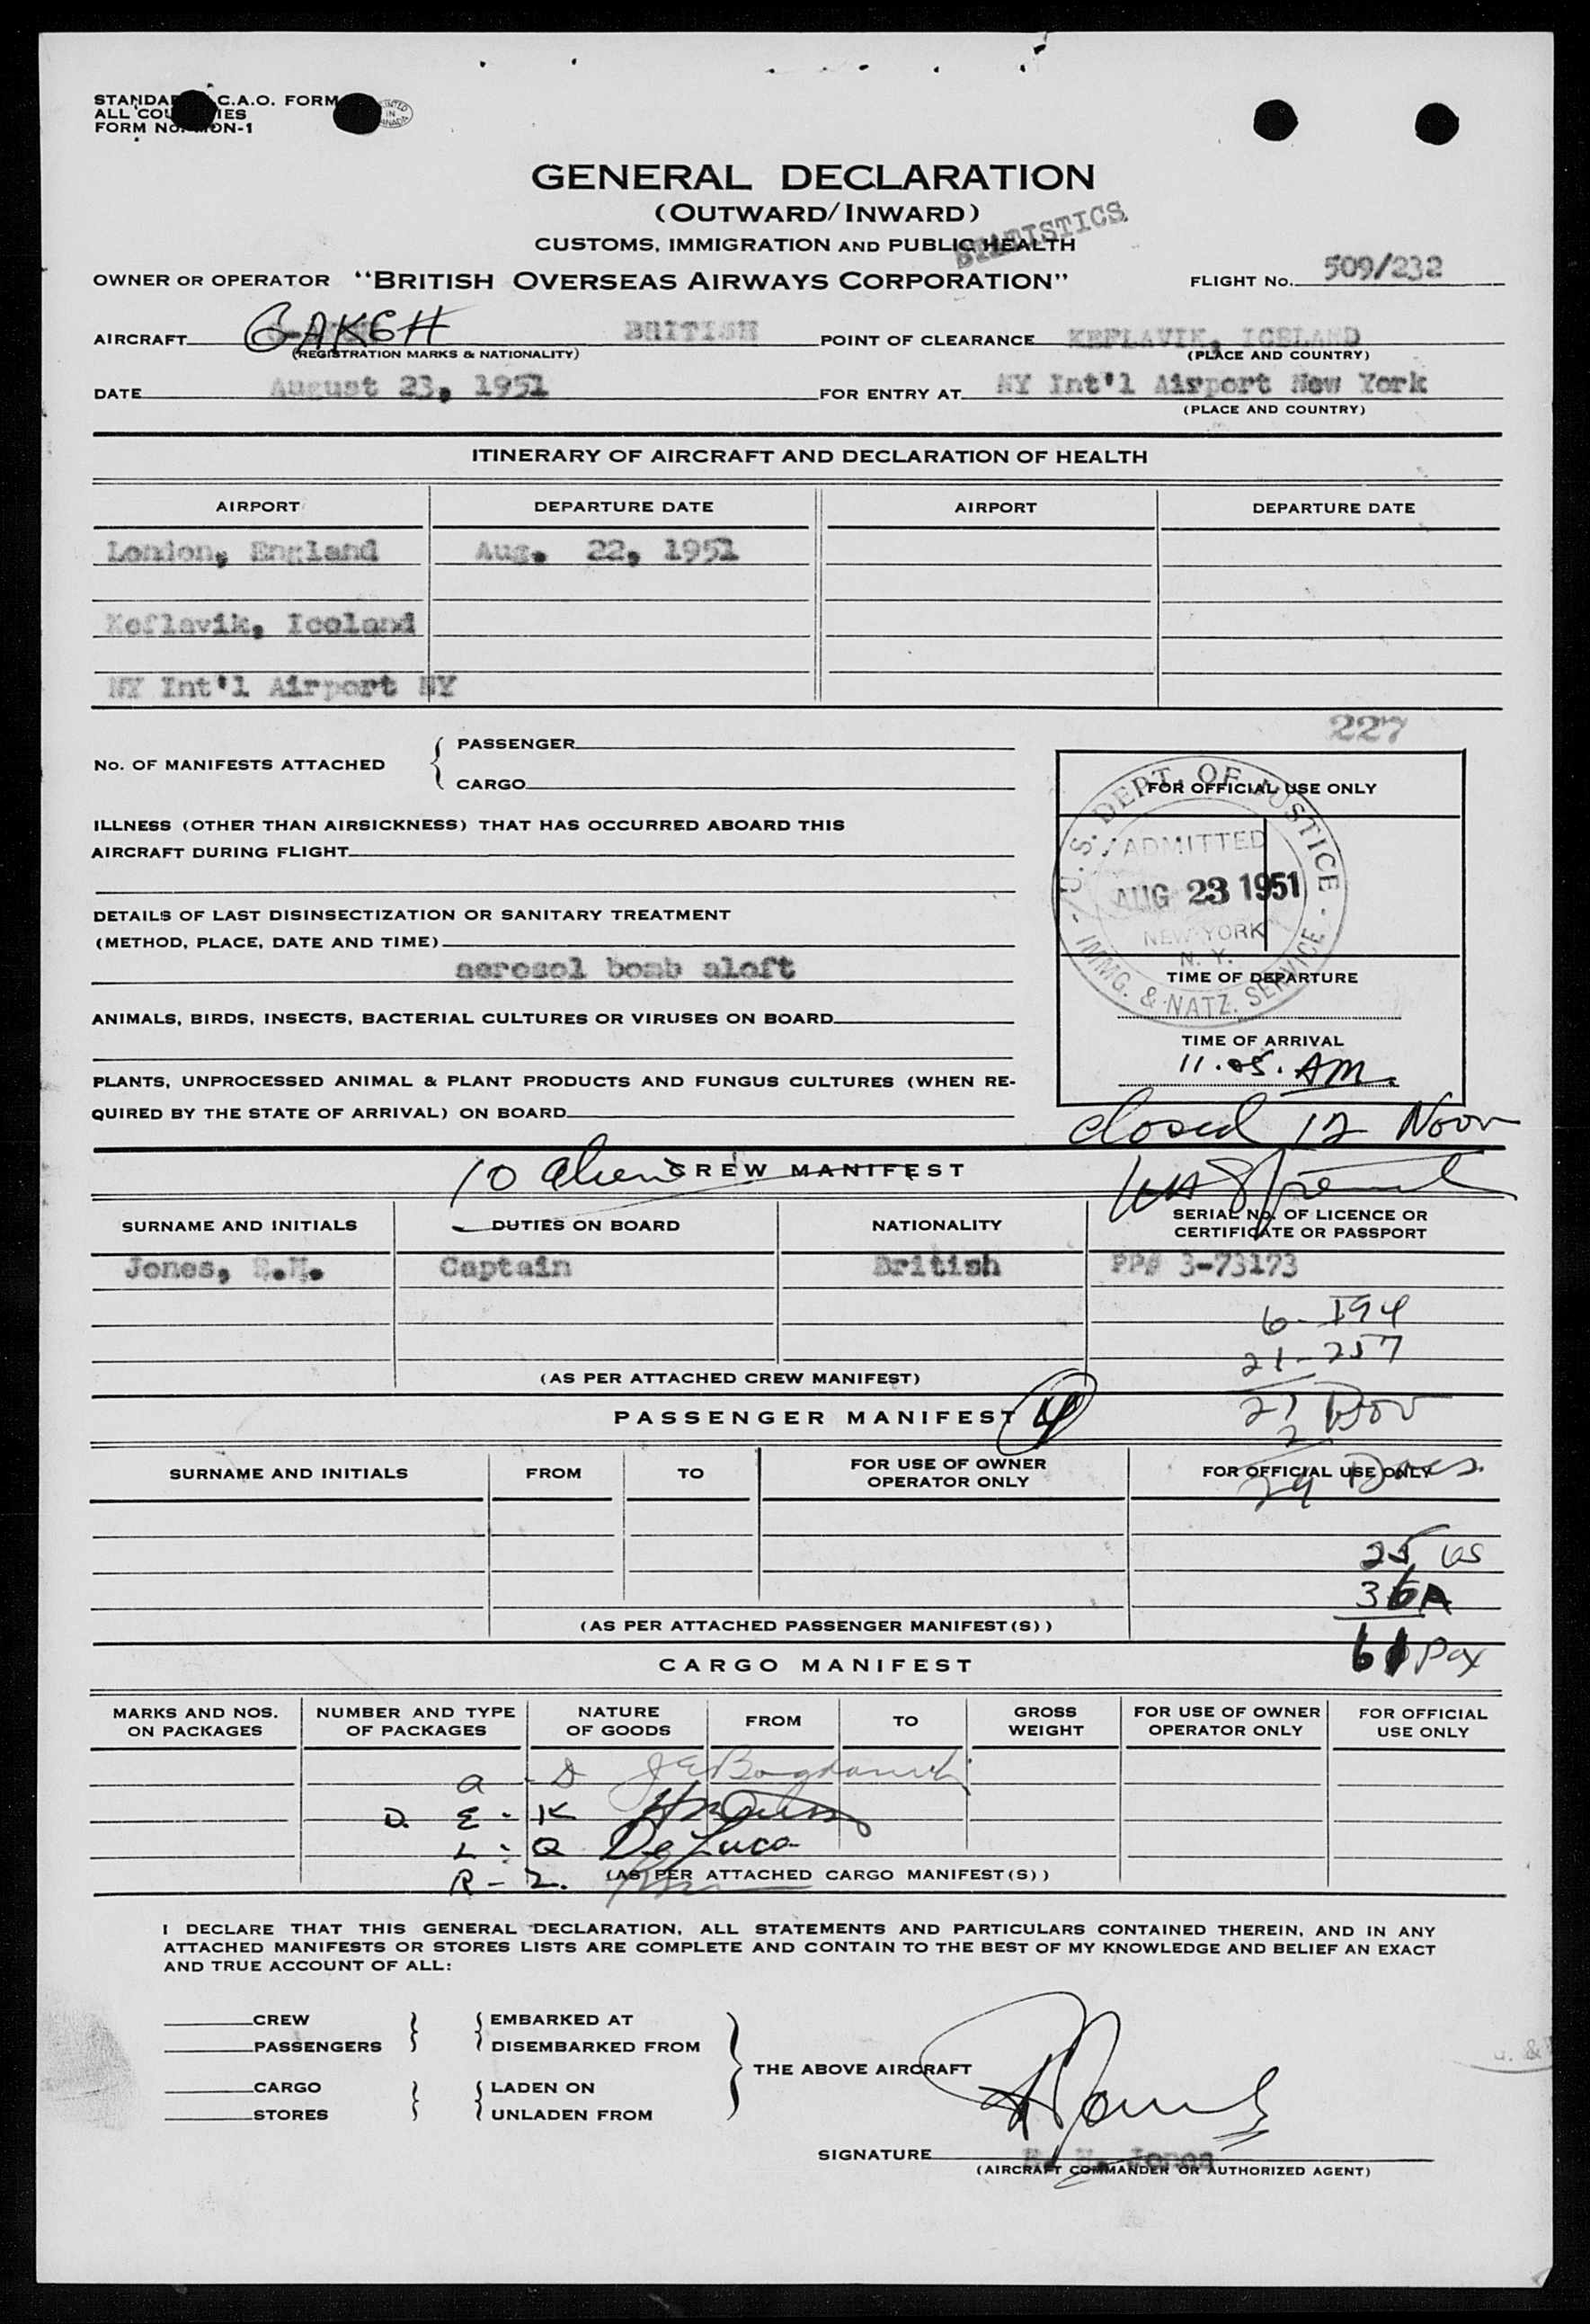 STANDARD I.C.A.O. FORM
ALL COUNTRIES
FORM No. MON-1
PRINTED
IN
CANADA
GENERAL DECLARATION
(OUTWARD/INWARD)
STATISTICS
CUSTOMS, IMMIGRATION AND PUBLIC HEALTH
OWNER OR OPERATOR "BRITISH OVERSEAS AIRWAYS CORPORATION" FLIGHT No. 509/232
AIRCRAFT G-AKGH BRITISH POINT OF CLEARANCE KEFLAVIK, ICELAND
(REGISTRATION MARKS & NATIONALITY) (PLACE AND COUNTRY)
DATE August 23, 1951 FOR ENTRY AT NY Int'l Airport New York
(PLACE AND COUNTRY)
ITINERARY OF AIRCRAFT AND DECLARATION OF HEALTH
AIRPORT DEPARTURE DATE AIRPORT DEPARTURE DATE
London, England Aug. 22, 1951
Keflavik, Iceland
NY Int'l Airport NY
227
No. OF MANIFESTS ATTACHED { PASSENGER
CARGO
FOR OFFICIAL USE ONLY
U.S. DEPT. OF JUSTICE - IMMG. & NATZ. SERVICE -
ADMITTED
AUG 23 1951
NEW YORK
N. Y.
ILLNESS (OTHER THAN AIRSICKNESS) THAT HAS OCCURRED ABOARD THIS
AIRCRAFT DURING FLIGHT
DETAILS OF LAST DISINSECTIZATION OR SANITARY TREATMENT
(METHOD, PLACE, DATE AND TIME)
aerosol bomb aloft
TIME OF DEPARTURE
ANIMALS, BIRDS, INSECTS, BACTERIAL CULTURES OR VIRUSES ON BOARD
TIME OF ARRIVAL
11.05. AM.
PLANTS, UNPROCESSED ANIMAL & PLANT PRODUCTS AND FUNGUS CULTURES (WHEN RE-
QUIRED BY THE STATE OF ARRIVAL) ON BOARD
closed 12 Noon
10 aliens CREW MANIFEST
SURNAME AND INITIALS DUTIES ON BOARD NATIONALITY SERIAL No. OF LICENCE OR
CERTIFICATE OR PASSPORT
Jones, Captain British PP# 3-73173
6- I94
21-257
(AS PER ATTACHED CREW MANIFEST)
PASSENGER MANIFEST 4
27
2
SURNAME AND INITIALS FROM TO FOR USE OF OWNER
OPERATOR ONLY FOR OFFICIAL USE ONLY
29
25 US
36 A
61 Pax
(AS PER ATTACHED PASSENGER MANIFEST(S))
CARGO MANIFEST
MARKS AND NOS.
ON PACKAGES NUMBER AND TYPE
OF PACKAGES NATURE
OF GOODS FROM TO GROSS
WEIGHT FOR USE OF OWNER
OPERATOR ONLY FOR OFFICIAL
USE ONLY
A - D
D. E - K
L - Q De Luca
R - Z.
(AS PER ATTACHED CARGO MANIFEST(S))
I DECLARE THAT THIS GENERAL DECLARATION, ALL STATEMENTS AND PARTICULARS CONTAINED THEREIN, AND IN ANY
ATTACHED MANIFESTS OR STORES LISTS ARE COMPLETE AND CONTAIN TO THE BEST OF MY KNOWLEDGE AND BELIEF AN EXACT
AND TRUE ACCOUNT OF ALL:
CREW EMBARKED AT
PASSENGERS DISEMBARKED FROM
THE ABOVE AIRCRAFT
CARGO LADEN ON
STORES UNLADEN FROM
SIGNATURE Jones
(AIRCRAFT COMMANDER OR AUTHORIZED AGENT)